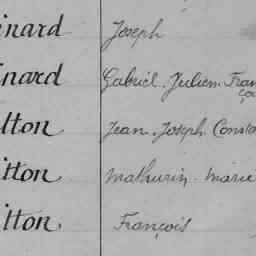 inard Joseph
inard Gabriel. Julien. Fran
ço
tton Jean. Joseph. Consta
itton Mathurin. Marie
itton François